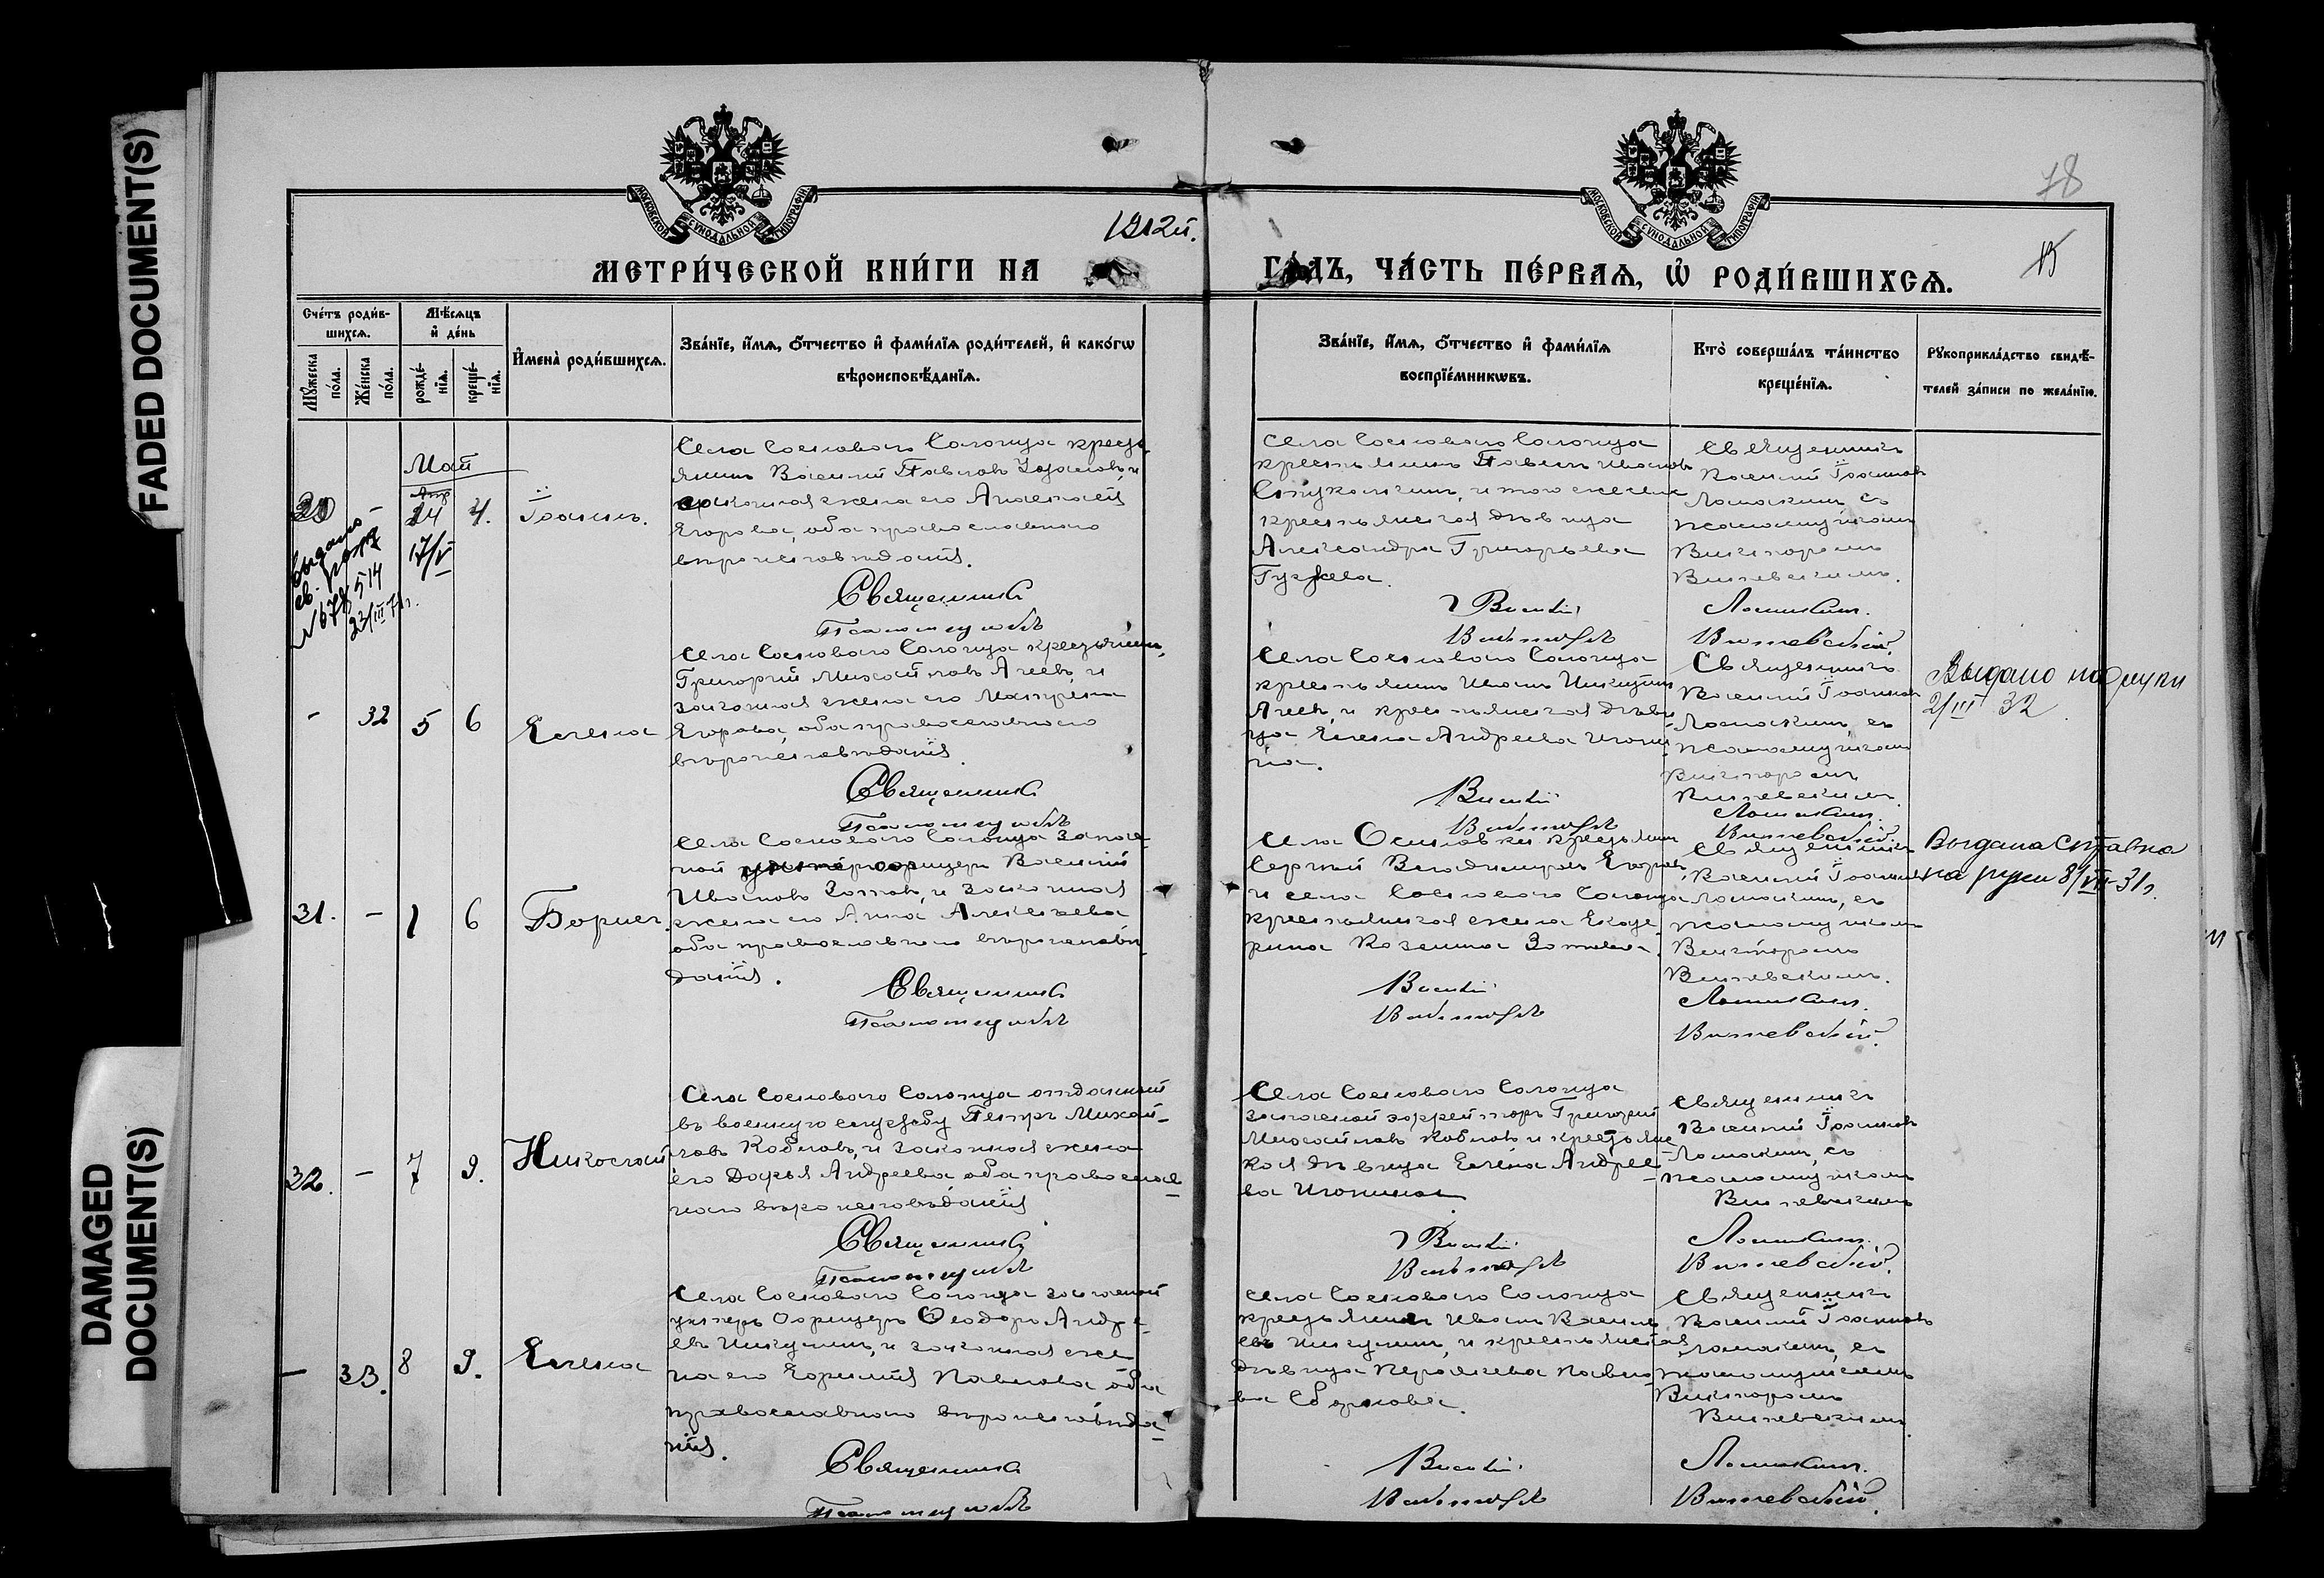 FADED DOCUMENT(S)
DAMAGED
DOCUMENT(S)
МОСКОВСКОЙ СѴНОДАЛЬНОЙ ТИПОГРАФІИ
МОСКОВСКОЙ СѴНОДАЛЬНОЙ ТИПОГРАФІИ
78
1912й.
15
МЕТРИ́ЧЕСКОЙ КНИ́ГИ НА
ГО́ДЪ, ЧА́СТЬ ПЕ́РВАЯ, Ѡ҆ РОДИ́ВШИХСЯ.
Сче́тъ роди́в-
шихся.
Мѣ́сяцъ
и҆ де́нь
Мꙋ́жеска
по́ла.
Же́нска
по́ла.
рожде́-
нїя.
креще́-
нїя.
И҆мена̀ роди́вшихся.
Зва́нїе, и҆́мя, ѻ҆́тчество и҆ фами́лїя роди́телей, и҆ како́гѡ
вѣроисповѣ́данїя.
Зва́нїе, и҆́мя, ѻ҆́тчество и҆ фами́лїя
воспрїе́мникѡвъ.
Кто̀ соверша́лъ та́инство
креще́нїя.
Рꙋкоприкла́дство свидѣ́-
телей за́писи по жела́нїю.
Май
30
24
4.
17/V
Іоаннъ.
выдано
св.
23/III
Села Сосноваго Солонца кресть
янинъ Василий Павловъ и
законная жена его Анастасія
Егорова, оба православнаго
вѣроисповѣданія.
Священникъ
Псаломщикъ
Села Сосноваго Солонца
крестьянинъ Павелъ Ивановъ
и того же села
крестьянская дѣвица
Александра Григорьева
Гужева.
Василій
Викторъ
Священникъ
Василій Іоанновъ
Ломакинъ, съ
псаломщикомъ
Викторомъ
Вишневскимъ.
Ломакинъ.
Вишневскій.
-
32
5
6
Елена
Села Сосноваго Солонца крестьянинъ
Григорій Михайловъ Агеевъ, и
законная жена его Матрена
Егорова, оба православнаго
вѣроисповѣданія.
Священникъ
Псаломщикъ
Села Сосноваго Солонца
крестьянинъ Иванъ Никитинъ
Агеевъ, и крестьянская дѣви
ца Елена Андреева Игони
на.
Василій
Викторъ
Священникъ
Василій Іоанновъ
Ломакинъ, съ
псаломщикомъ
Викторомъ
Вишневскимъ.
Ломакинъ.
Вишневскій.
Выдано на руки
2/III 32
31.
-
1
6
Борисъ.
Села Сосноваго Солонца запас-
ной унтеръ офицеръ Василій
Ивановъ Зотовъ, и законная
жена его Анна Алексѣева
оба православнаго вѣроисповѣ-
данія.
Священникъ
Псаломщикъ
Села Осиновки крестьянин
Сергій Владимировъ Егоровъ,
и села Сосноваго Солонца
крестьянская жена Екате
рина Козмина Зотова.
Василій
Викторъ
Священникъ
Василій Іоанновъ
Ломакинъ, съ
псаломщикомъ
Викторомъ
Вишневскимъ.
Ломакинъ.
Вишневскій.
Выдана справка
на руки 8/VII-31г.
32.
-
7
9.
Николай
Села Сосноваго Солонца отданный
въ военную службу Петръ Михай-
ловъ Кобловъ, и законная жена
его Дарья Андреева оба православ-
наго вѣроисповѣданія
Священникъ
Псаломщикъ
Села Сосноваго Солонца
запасной эфрейторъ Григорій
Михайловъ Кобловъ и крестьянс
кая дѣвица Елена Андрее-
ва Игонина.
Василій
Викторъ
Священникъ
Василій Іоанновъ
Ломакинъ, съ
псаломщикомъ
Вишневскимъ
Ломакинъ.
Вишневскій.
-
33.
8
9.
Елена
Села Сосноваго Солонца запасной
унтеръ Офицеръ Ѳеодоръ Андре-
евъ Никулинъ, и законная же
на его Павлова оба
православнаго вѣроисповѣда-
нія.
Священникъ
Псаломщикъ
Села Сосноваго Солонца
крестьянинъ Иванъ Василь
евъ Никулинъ, и крестьянская
дѣвица Павло-
ва
Василій
Викторъ
Священникъ
Василій Іоанновъ
Ломакинъ, съ
псаломщикомъ
Викторомъ
Вишневскимъ.
Ломакинъ.
Вишневскій.